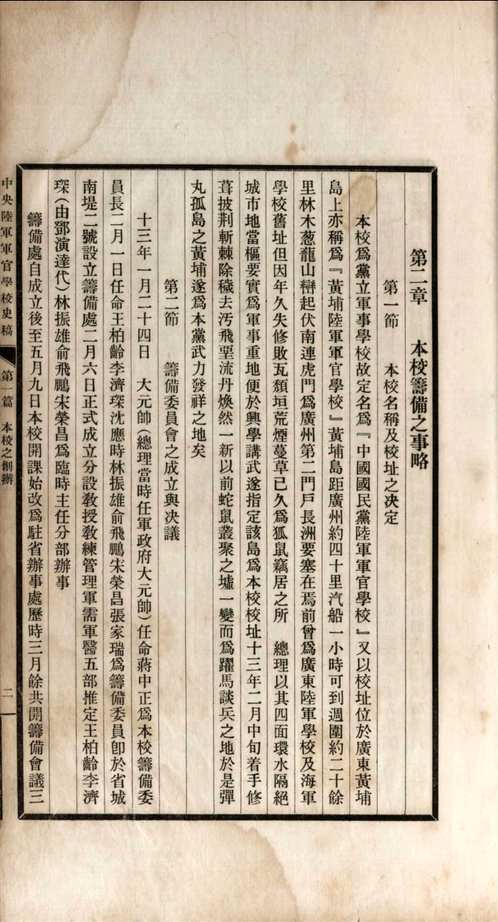 第二章　本校籌備之事略
第一節　本校名稱及校址之决定
本校爲黨立軍事學校故定名爲『中國國民黨陸軍軍官學校』又以校址位於廣東黃埔
島上亦稱爲『黃埔陸軍軍官學校』黃埔島距廣州約四十里汽船一小時可到週圍約二十餘
里林木葱蘢山巒起伏南連虎門爲廣州第二門戶長洲要塞在焉前曾爲廣東陸軍學校及海軍
學校舊址但因年久失修敗瓦頹垣荒煙蔓草已久爲狐鼠竊居之所　總理以其四面環水隔絕
城市地當樞要實爲軍事重地便於興學講武遂指定該島爲本校校址十三年二月中旬着手修
葺披荆斬棘除穢去汚飛堊流丹煥然一新以前蛇鼠叢聚之墟一變而爲躍馬談兵之地於是彈
丸孤島之黃埔遂爲本黨武力發祥之地矣
第二節　籌備委員會之成立與决議
十三年一月二十四日　大元帥（總理當時任軍政府大元帥）任命蔣中正爲本校籌備委
員長二月一日任命王柏齡李濟琛沈應時林振雄俞飛鵬宋榮昌張家瑞爲籌備委員卽於省城
南堤二號設立籌備處二月六日正式成立分設教授教練管理軍需軍醫五部推定王柏齡李濟
琛（由鄧演達代）林振雄俞飛鵬宋榮昌爲臨時主任分部辦事
籌備處自成立後至五月九日本校開課始改爲駐省辦事處歷時三月餘共開籌備會議三
中央陸軍軍官學校史稿　第一篇　本校之創辦　二